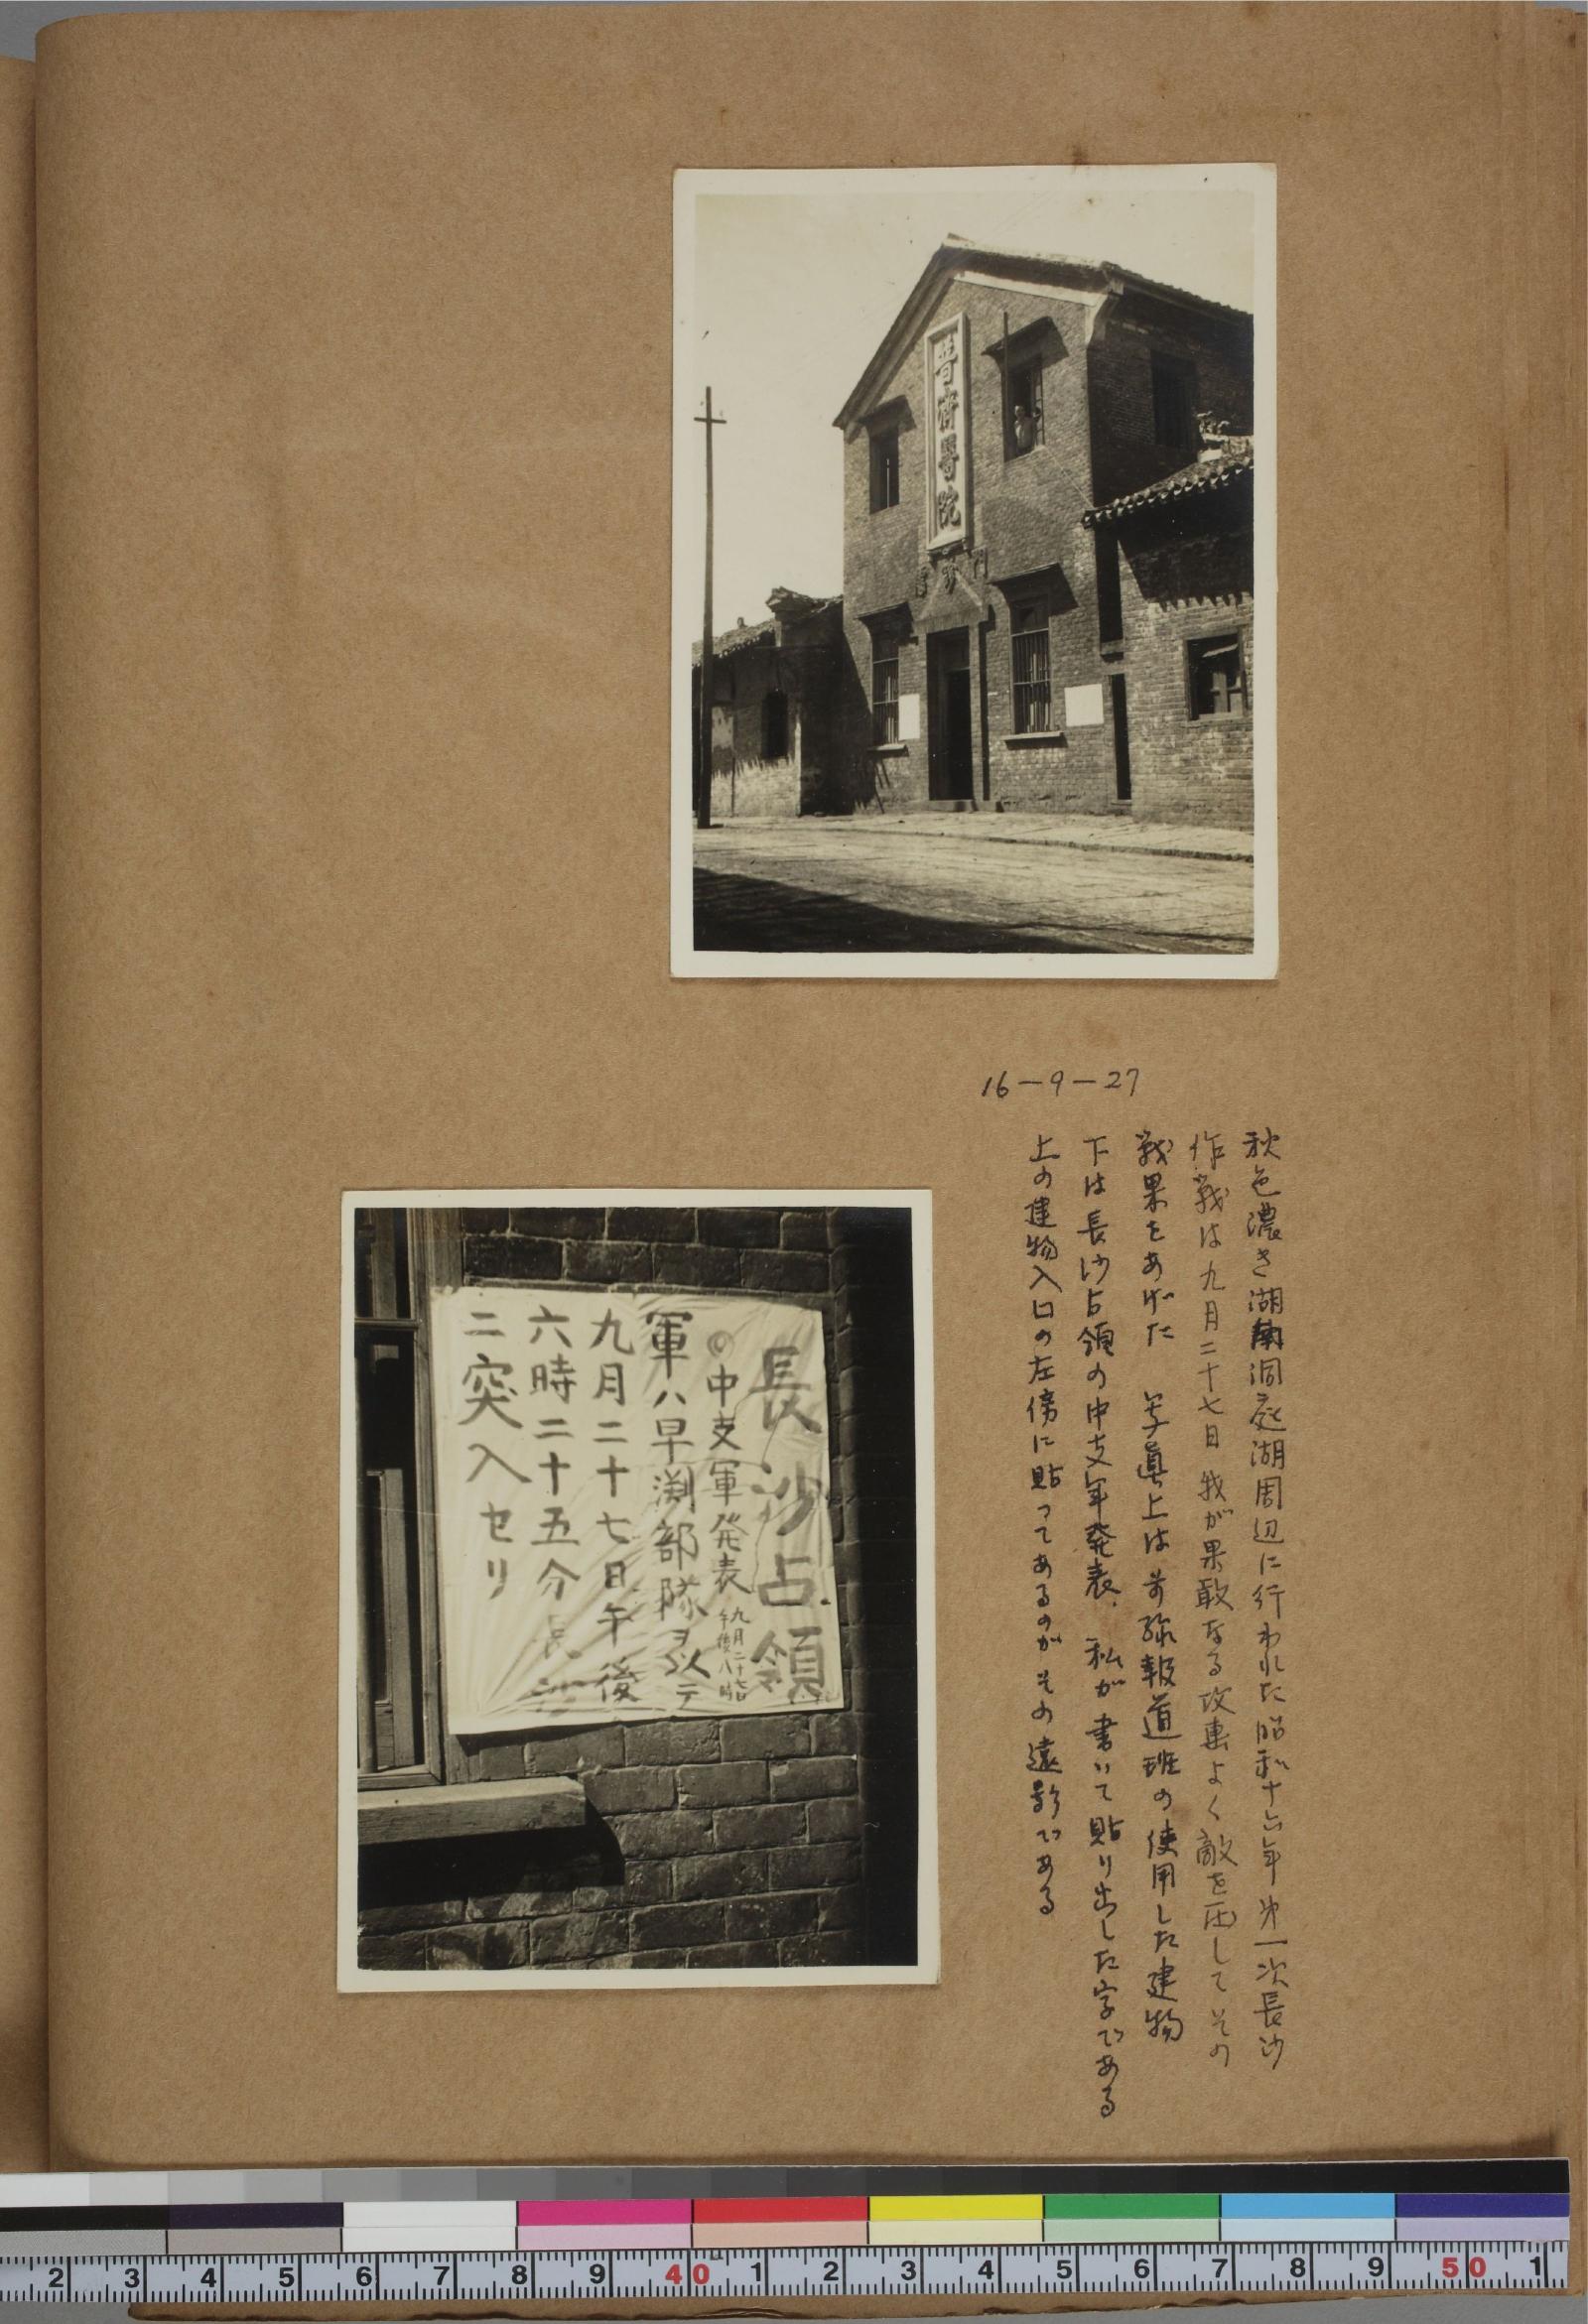 普濟醫院
16-9-27
秋色濃き湖南洞庭湖周辺に行われた昭和十六年第一次長沙
作戦は九月二十七日我が果敢なる攻車よく敵を圧してその
戦果をあげた 写真上は前線報道班の使用した建物
下は長沙占領の中支軍発表、私が書いて貼り出した字である
上の建物入口の左傍に貼ってあるのがその遠影である
長沙占領
◎中支軍発表 九月二十七日午後八時
軍ハ早渕部隊ヲ以テ
九月二十七日午後
六時二十五分長沙
ニ突入セリ
2 3 4 5 6 7 8 9 40 1 2 3 4 5 6 7 8 9 50 1